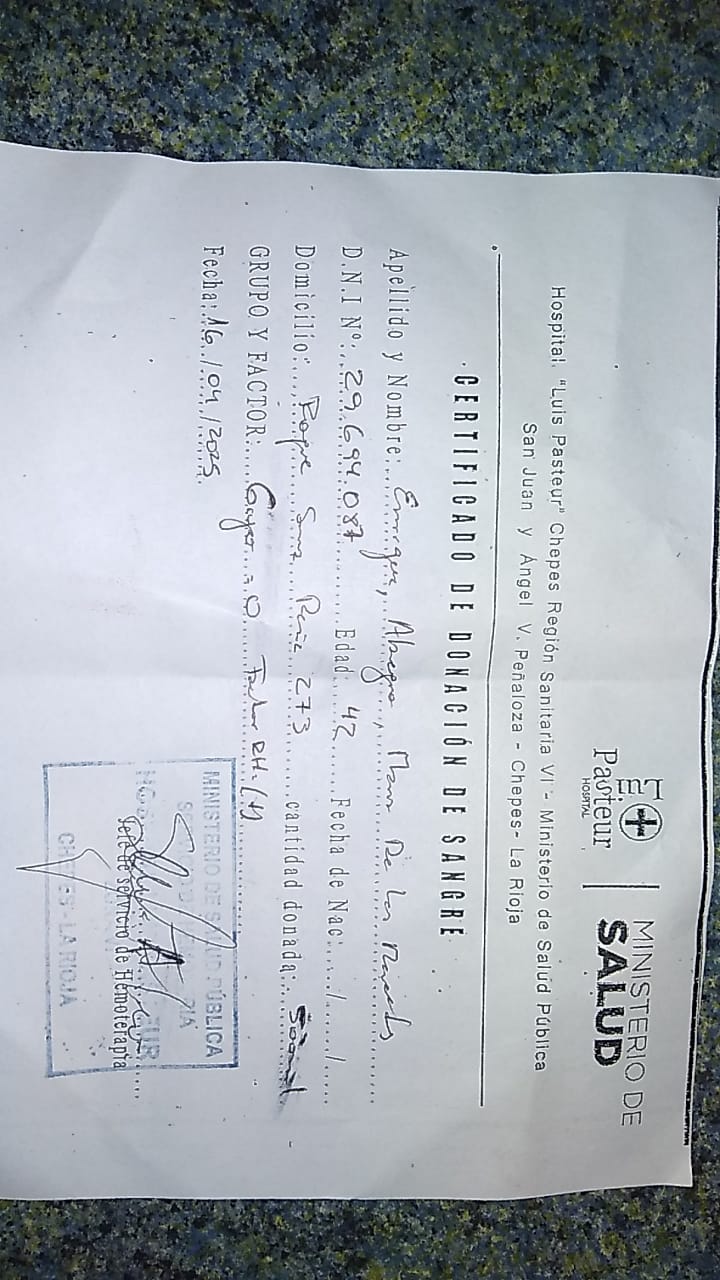 Pasteur
HOSPITAL
MINISTERIO DE
SALUD
Hospital "Luis Pasteur" Chepes Región Sanitaria VI - Ministerio de Salud Pública
San Juan y Ángel V. Peñaloza - Chepes- La Rioja
CERTIFICADO DE DONACIÓN DE SANGRE
Apellido y Nombre: Enrique, Abregu, De Las
D.N.I Nº: 29.694.087 Edad: 42 Fecha de Nac: / /
Domicilio: Roque Saenz Peña 273 cantidad donada: 500ml
GRUPO Y FACTOR: Grupo = O Factor RH. (+)
Fecha: 16 / 04 / 2025
MINISTERIO DE SALUD PÚBLICA
Jefe de servicio de Hemoterapia
CHEPES - LA RIOJA